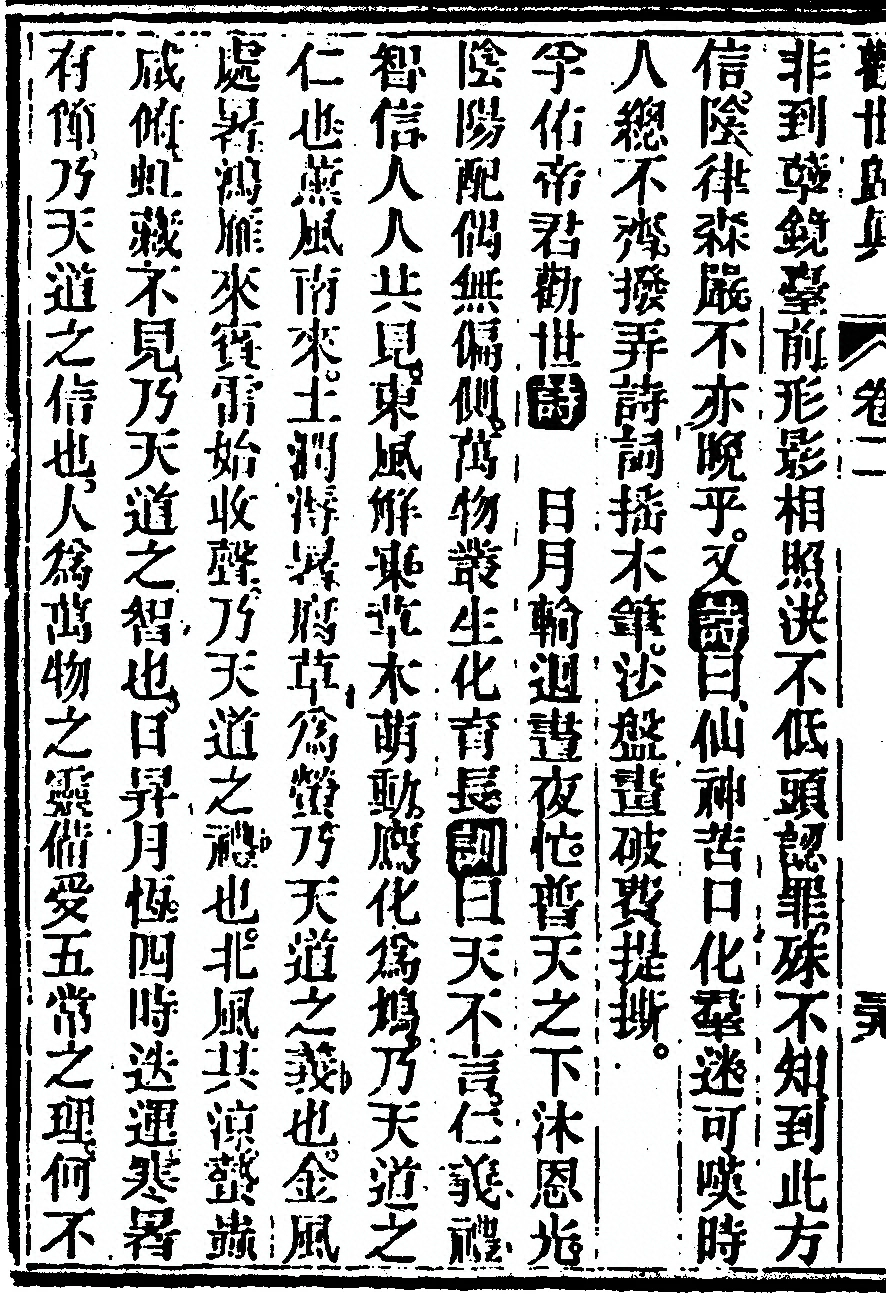 卷二
非到孽鏡臺前形影相照決不低頭認罪殊不知到此方
信陰律森嚴不亦晚乎。又詩曰仙神苦口化羣迷可嘆時
人總不齊撥弄詩詞搖木筆。沙盤畫破費提撕。
孚佑帝君勸世詩　日月輪迴晝夜忙。普天之下沐恩光
陰陽配偶無偏側。萬物叢生化育長訓曰天不言。仁義禮
智信人人共見。東風解凍草木萌動。鷹化為鳩。乃天道之
仁也薰風南來。土潤溽暑腐草為螢乃天道之義也。金風
處暑鴻雁來賓雷始收聲。乃天道之禮也。北風其涼蟄蟲
咸俯虹藏不見。乃天道之智也。日昇月恆。四時迭運寒暑
有節。乃天道之信也。人為萬物之靈偹受五常之理。何不